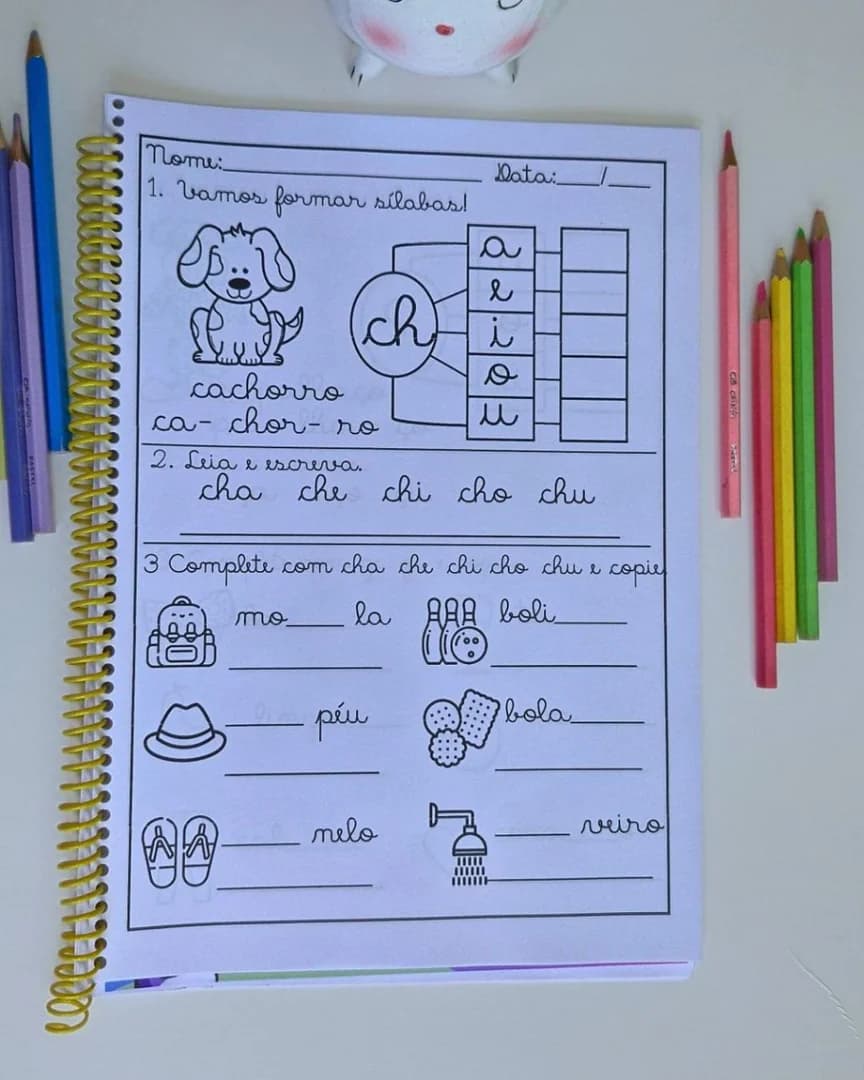 Nome:____________ Data:___/___
1. Vamos formar sílabas!
ch
a
e
i
o
u
cachorro
ca- chor- ro
2. Leia e escreva.
cha che chi cho chu
3 Complete com cha che chi cho chu e copie
mo____ la
boli____
____ péu
bola____
____ nelo
____ veiro